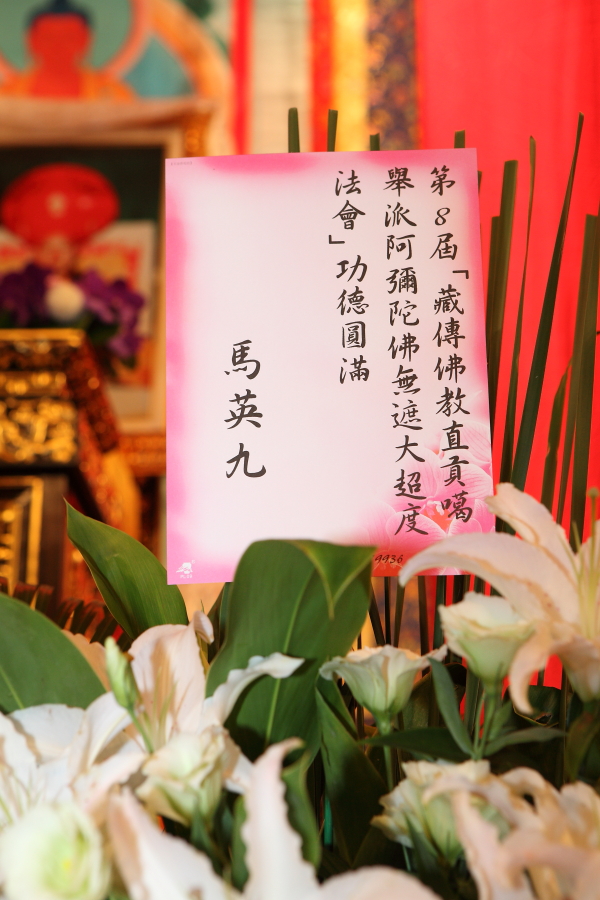 第8屆「藏傳佛教直貢噶
舉派阿彌陀佛無遮大超度
法會」功德圓滿
馬英九
4436